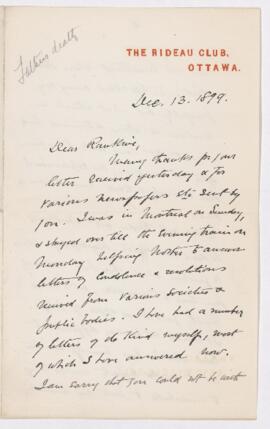 Father's death
THE RIDEAU CLUB,
OTTAWA.
Dec. 13. 1899.
Dear Rankine,
Many thanks for your
letter received yesterday & for
various newspapers etc sent by
you. I was in Montreal on Sunday,
& stayed over till the evening train on
Monday helping Mother to answer
letters of Condolence & resolutions
received from various Societies &
public bodies. I have had a number
of letters of do kind myself, most
of which I have answered now.
I am sorry that you could not be with